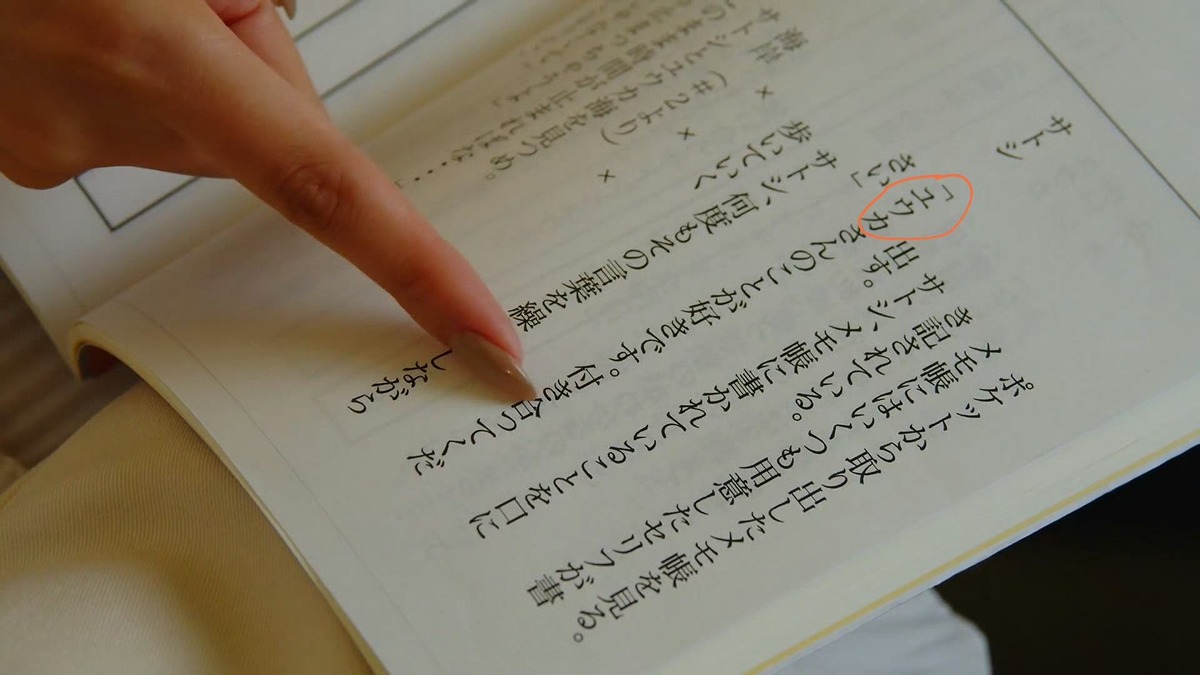 ポケットから取り出したメモ帳を見る。
メモ帳にはいくつも用意したセリフが書
き記されている。
サトシ、メモ帳に書かれていることを口に
出す。
サトシ「ユウカさんのことが好きです。付き合ってくだ
さい」
サトシ、何度もその言葉を繰 しながら
歩いていく
× × ×
海岸（＃２より）
サトシとユウカ海を見つめ。
このまま時間が止まればな・・・・」